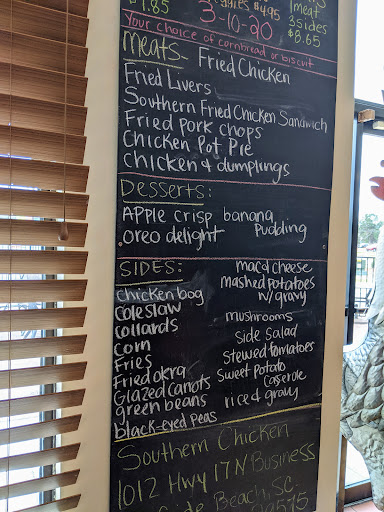 $4.95
1 meat
3 sides
3-10-20
$8.65
Your choice of cornbread or biscuit
Meats-
Fried Chicken
Fried Livers
Southern Fried Chicken Sandwich
Fried pork chops
Chicken Pot Pie
chicken & dumplings
Desserts:
Apple crisp banana
oreo delight Pudding
SIDES: mac & cheese
chicken bog mashed potatoes
w/gravy
Coleslaw
collards mushrooms
corn side salad
Fries stewed tomatoes
Fried okra sweet potato
Glazed carrots casserole
green beans rice & gravy
black-eyed peas
Southern Chicken
1012 Hwy 17 N Business
Beach, SC.